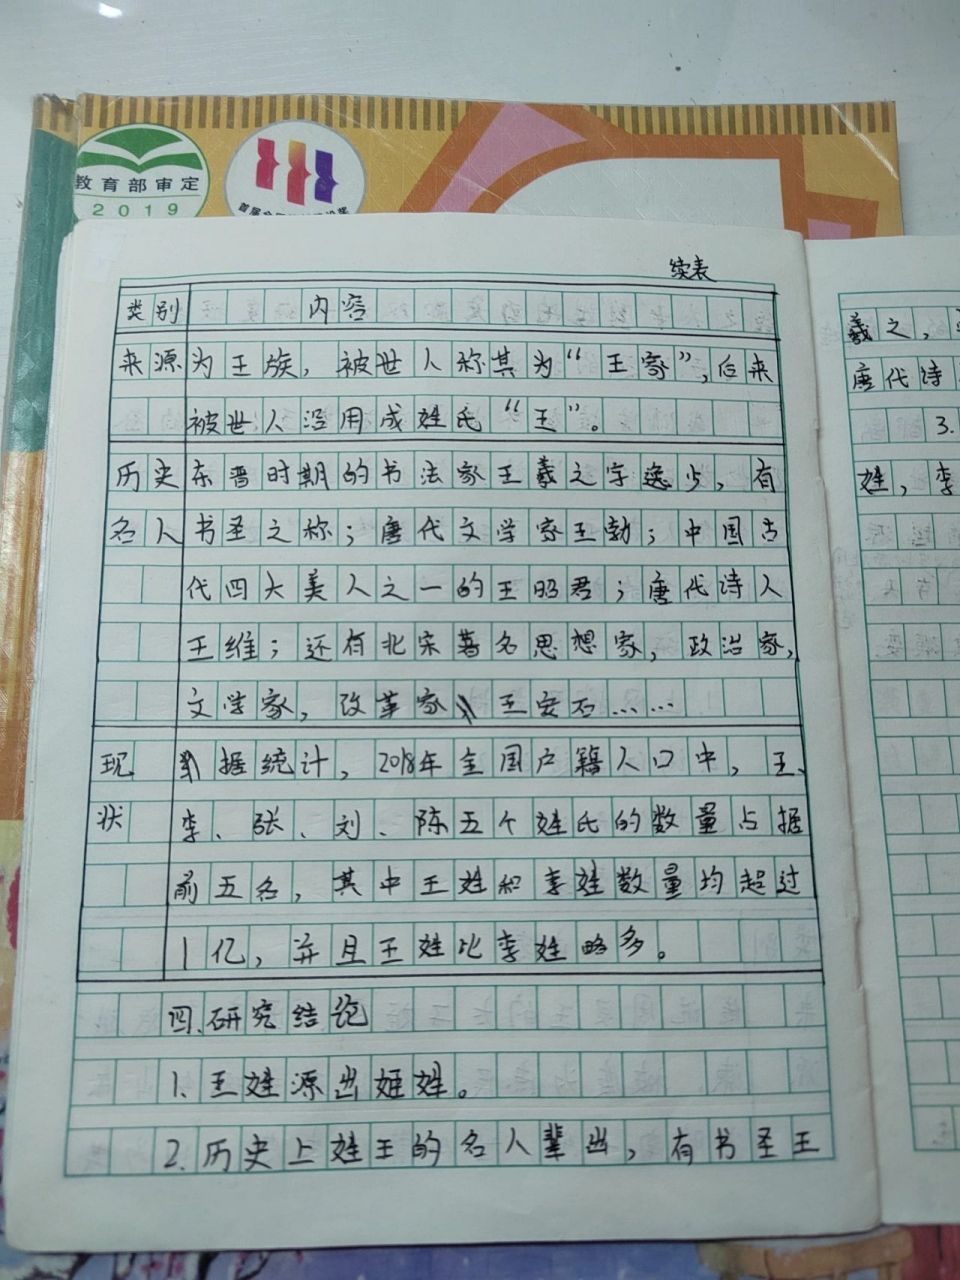 教育部审定
2019
续表
类别 内容
来源 为王族，被世人称其为“王家”，后来
被世人沿用成姓氏“王”。
历史 东晋时期的书法家王羲之字逸少，有
名人 书圣之称；唐代文学家王勃；中国古
代四大美人之一的王昭君；唐代诗人
王维；还有北宋著名思想家，政治家，
文学家，改革家、王安石……
现 据统计，2018年全国户籍人口中，王、
状 李、张、刘、陈五个姓氏的数量占据
前五名，其中王姓和李姓数量均超过
1亿，并且王姓比李姓略多。
四.研究结论
1.王姓源出姬姓。
2.历史上姓王的名人辈出，有书圣王
羲之，
唐代诗
3.
姓，李